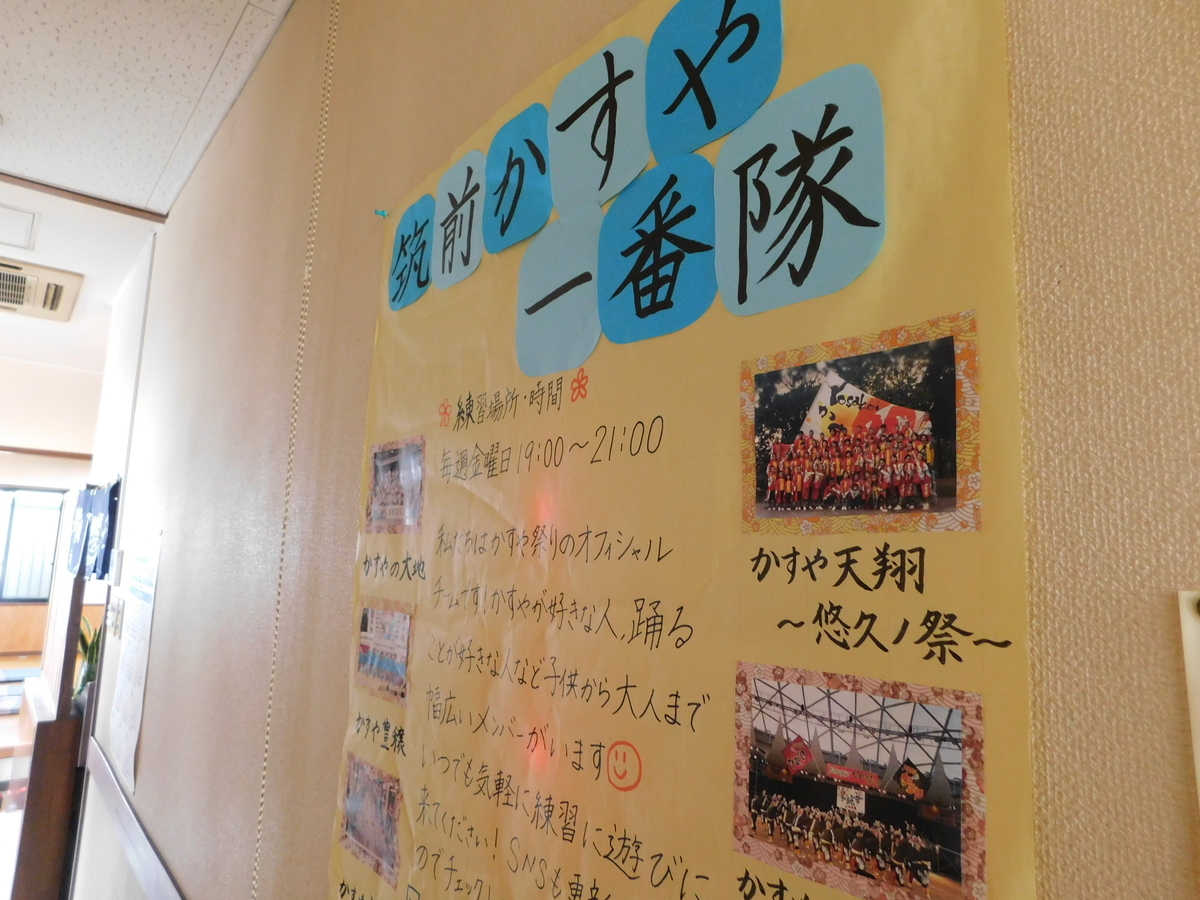 筑前かすや
一番隊
練習場所・時間
毎週金曜日 19:00〜21:00
私たちはかすや祭りのオフィシャル
チームです!かすやが好きな人、踊る
ことが好きな人など子供から大人まで
幅広いメンバーがいます
いつでも気軽に練習に遊びに
来てください! SNSも更新
のでチェック!
かすやの大地
かすや豊穣
かすや天翔
〜悠久ノ祭〜
かすや